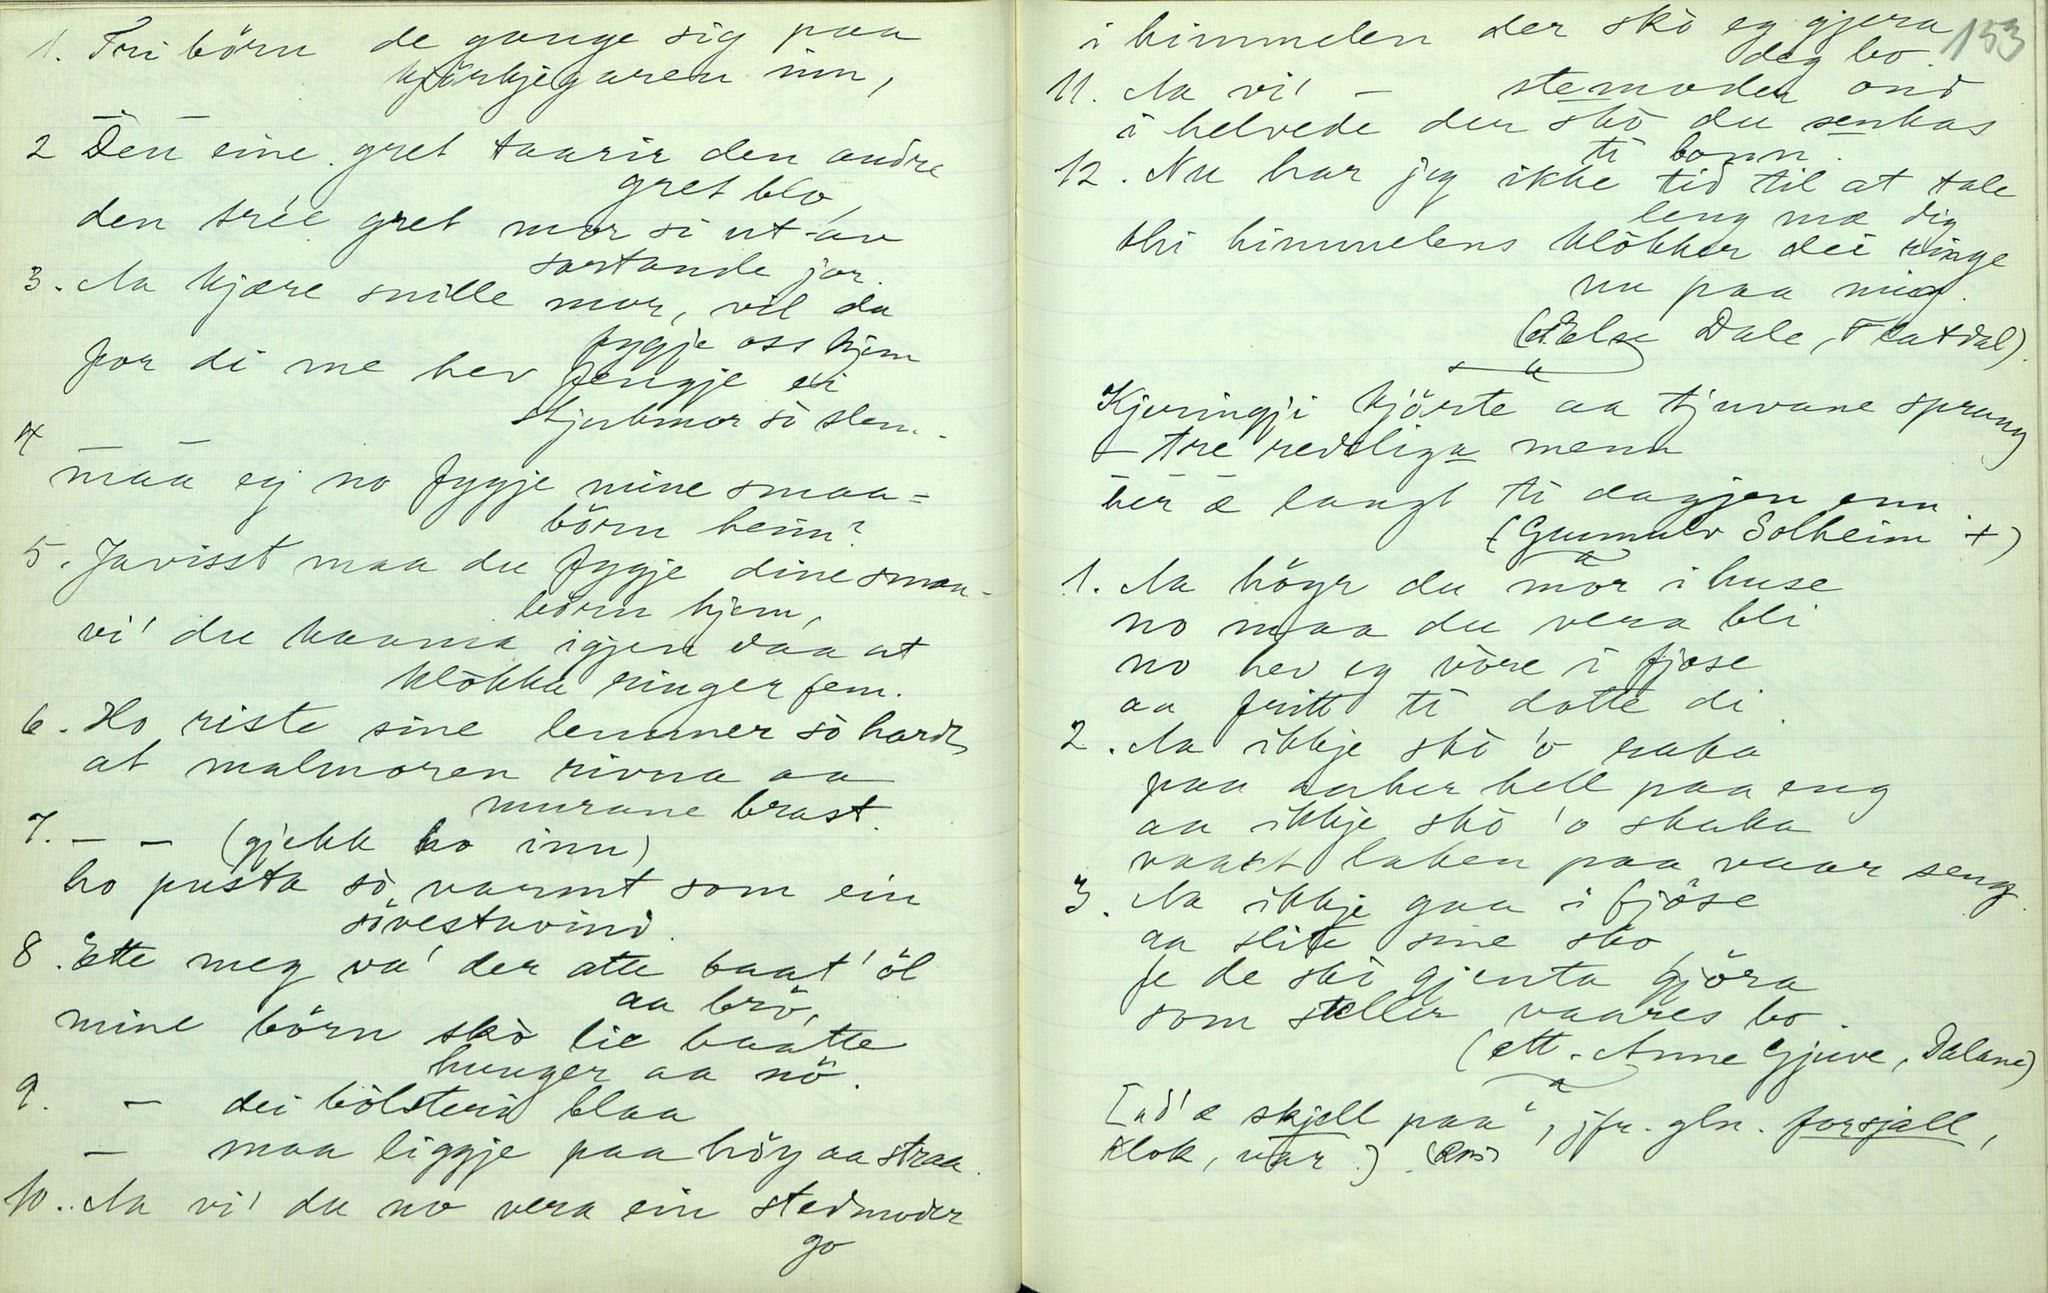 1. Tri börn de gange sig paa
kjörkjegaren inn,
— —
2 Den eine gret taarir den andre
gret blo,
den trée gret mor si ut-av
sortande jor.
3. Aa kjære snille mor, vil du
fygje oss hjem
for di me hev fengje ei
stjukmor sò slem.
4 — —
maa eg no fygje mine smaa-
börn heim?
5. Javisst maa du fygje dine smaa-
börn hjem,
vi' du kaama igjen daa at
klòkka ringer fem.
6. Ho riste sine lemmer sò hardt,
at malmoren rivna aa
murane brast.
7. — — (gjekk ho inn)
ho pusta sò varmt som ein
sövestavind.
8. Ette meg va' der atte baat' öl
aa brö,
mine börn skò lie baatte
hunger aa nö.
9. — dei bölsterir blaa
— maa liggje paa höy aa straa.
10. Aa vi' du no vera ein stedmoder
go
153
i himmelen der skò eg gjera
deg bo.
11. Aa vi' — stemoder ond
i helvede der skò du senkas
ti bonn.
12. Nu har jeg ikke tid til at tale
leng mæ dig
thi himmelens klòkker dei ringe
nu paa mig.
(Else Dale, Flatdal).
Kjeringji kjörte aa tjuvane sprang
— tre redsliga menn
her æ langt ti dagjen enn.
(Gunnulv Solheim +)
1. Aa höyr du mor i huse
no maa du vera bli
no hev eg vòre i fjose
aa fritt ti dotte di.
2. Aa ikkje skò 'o raka
paa aaker hell paa eng
aa ikkje skò 'o skaka
vaart laken paa vaar seng.
3. Aa ikkje gaa i fjòse
aa slite sine sko,
fe de skò gjenta gjöra
som steller vaares bo.
(ett. Anne Gjuve, Dalane)
["ad'æ skjell paa", jfr. gln. forsjall,
klok, var.) (Ross)